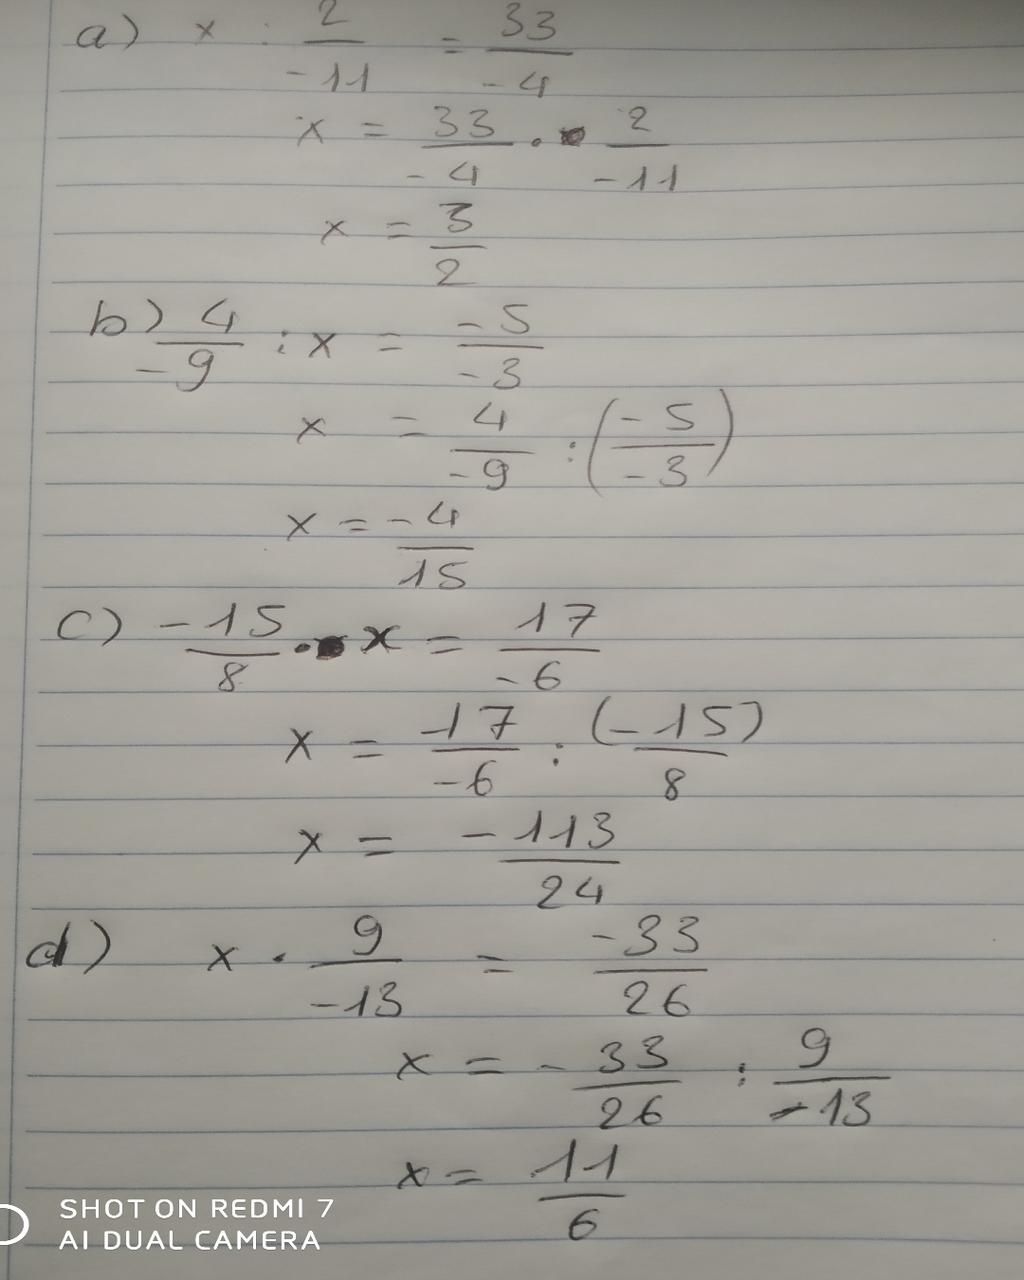 a) x : 2/-11 = 33/-4
x = 33/-4 . 2/-11
x = 3/2
b) 4/-9 : x = -5/-3
x = 4/-9 : (-5/-3)
x = -4/15
c) -15/8 . x = 17/-6
x = 17/-6 : (-15)/8
x = -113/24
d) x . 9/-13 = -33/26
x = -33/26 : 9/-13
x = 11/6
SHOT ON REDMI 7
AI DUAL CAMERA